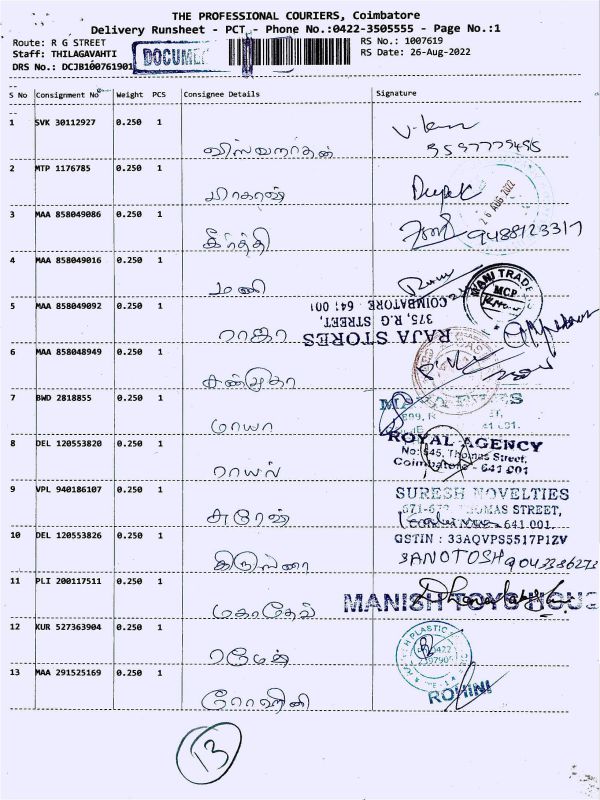 THE PROFESSIONAL COURIERS, Coimbatore
Delivery Runsheet - PCT - Phone No.:0422-3505555 - Page No.:1
Route: R G STREET
RS No.: 1007619
Staff: THILAGAVAHTI
RS Date: 26-Aug-2022
DRS No.: DCJB100761901
S No Consignment No Weight PCS Consignee Details Signature
1 SVK 30112927 0.250 1
விஸ்வநாதன்
2 MTP 1176785 0.250 1
பாகரன் Deepak
26 AUG 2022
3 MAA 858049086 0.250 1
கீர்த்தி 9488123317
4 MAA 858049016 0.250 1
மணி
MANI TRADE
MCP
5 MAA 858049092 0.250 1
ராஜா
RAJA STORES
375, R.G STREET,
COIMBATORE - 641 001
6 MAA 858048949 0.250 1
சண்முகா
7 BWD 2818855 0.250 1
மாயா
8 DEL 120553820 0.250 1
ராயல்
ROYAL AGENCY
No: 545, Thomas Street,
Coimbatore - 641 001
9 VPL 940186107 0.250 1
சுரேஷ்
SURESH NOVELTIES
THOMAS STREET,
641 001.
GSTIN : 33AQVPS5517P1ZV
10 DEL 120553826 0.250 1
கிருஸ்ணா SANOTOSH 9043386273
11 PLI 200117511 0.250 1
மகாதேவ்
MANISH TOYS HOUS
12 KUR 527363904 0.250 1
ரமேஷ்
PLASTIC
0422
13 MAA 291525169 0.250 1
ரோஹினி ROHINI
13